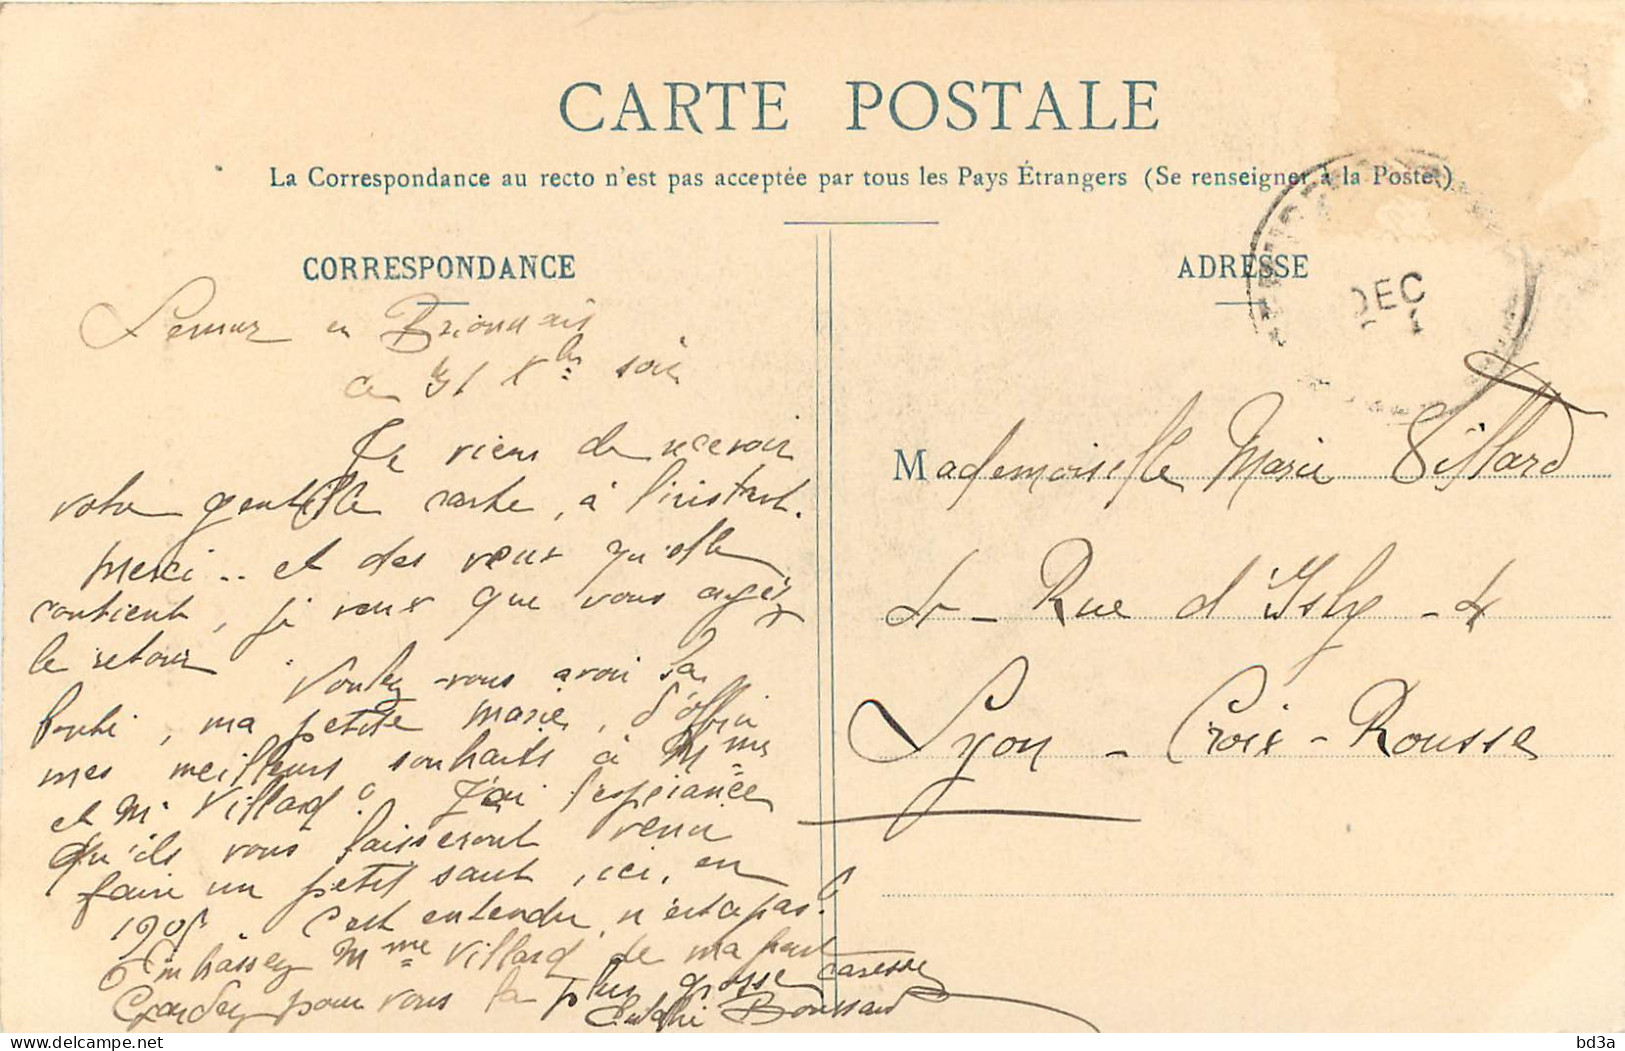 CARTE POSTALE
La Correspondance au recto n'est pas acceptée par tous les Pays Étrangers (Se renseigner à la Poste.)
CORRESPONDANCE
Semur en Brionnais
ce 31 Xbre soir
Je viens de recevoir
votre gentille carte, à l'instant.
Merci .. et des vœux qu'elle
contient, je veux que vous ayez
le retour. Voulez-vous avoir la
bonté, ma petite Marie, d'offrir
mes meilleurs souhaits à Mme
et Mr Villard? J'ai l'espérance
qu'ils vous laisseront venir
faire un petit saut, ici, en
1905. C'est entendu, n'est-ce pas?
Embrassez Mme Villard de ma part
Gardez pour vous la plus grosse caresse
Boussand
ADRESSE
DEC
Mademoiselle Marie Villard
4 - Rue d'Isly - 4
Lyon - Croix-Rousse
bd3a
delcampe.net